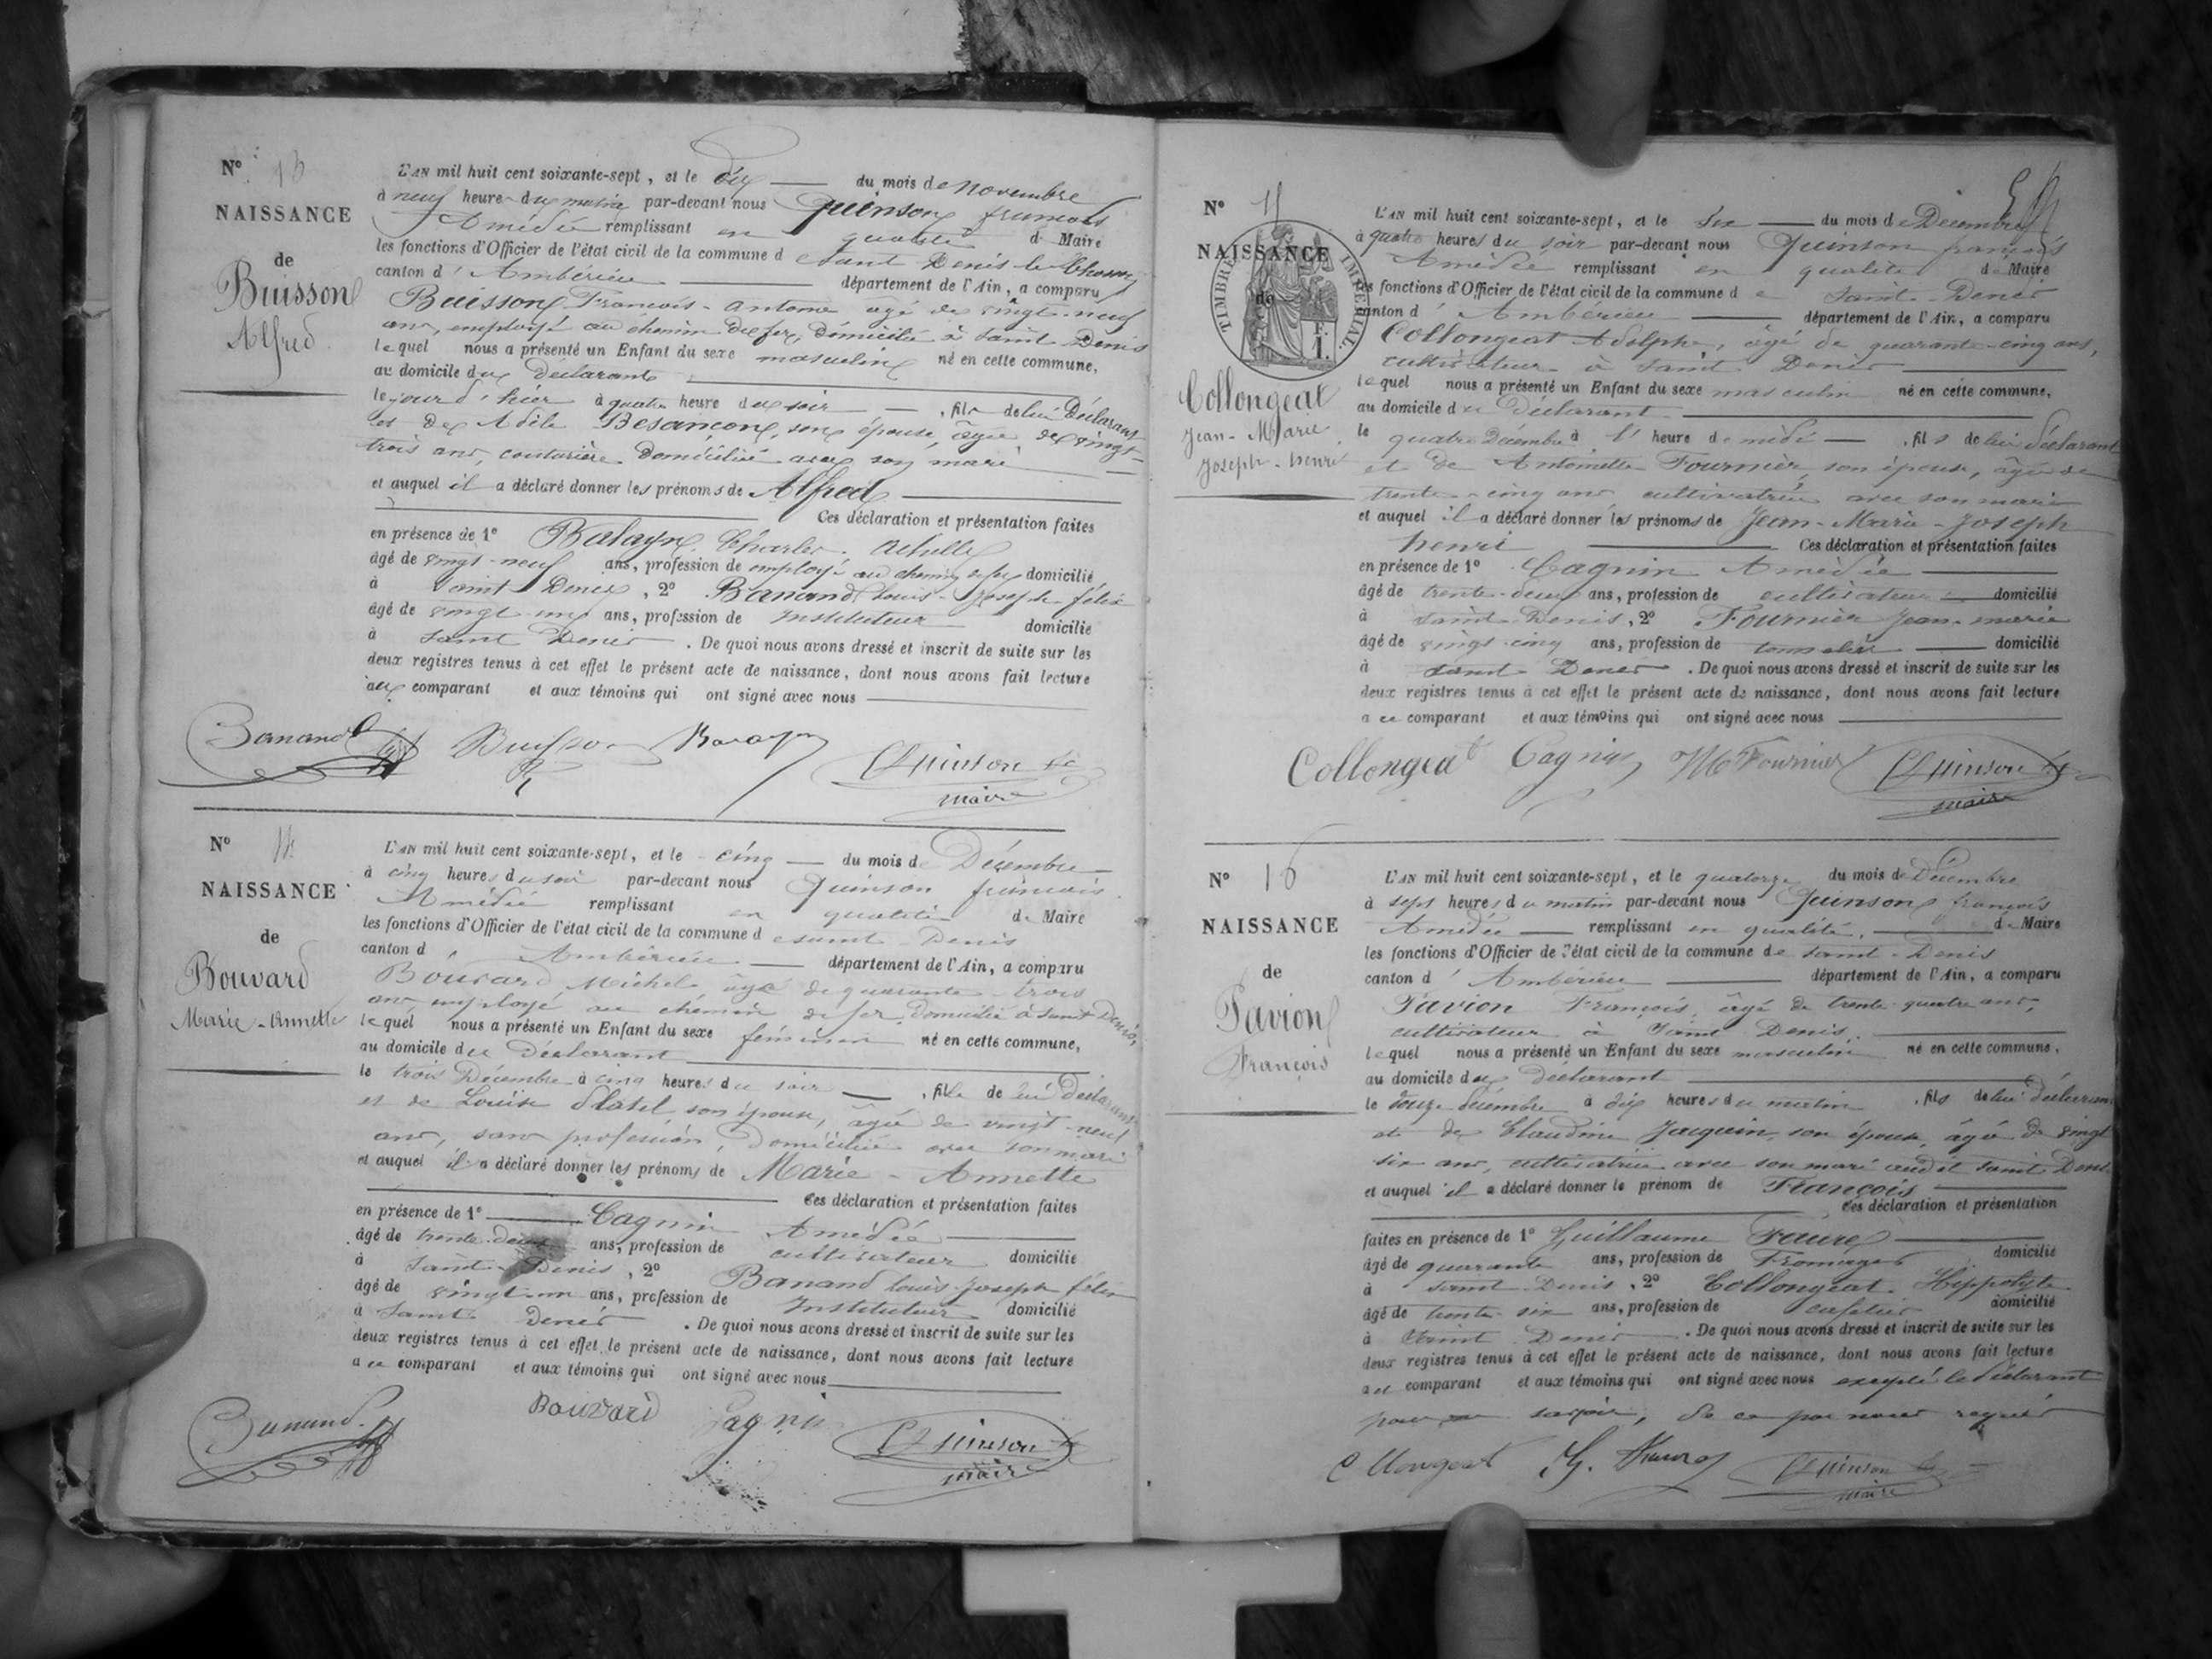 N° 13
NAISSANCE
de
Buisson
Alfred
L'AN mil huit cent soixante-sept, et le dix du mois de novembre
à neuf heure du matin par-devant nous Quinson françois
Amédée remplissant en qualité de Maire
les fonctions d'Officier de l'état civil de la commune de saint Denis le Chosson
canton d'Ambérieu département de l'Ain, a comparu
Buisson François-antoine âgé de vingt-neuf
ans, employé au chemin de fer, domicilié à saint Denis
lequel nous a présenté un Enfant du sexe masculin né en cette commune,
au domicile du Déclarant
le jour d'hier à quatre heure du soir, fils de lui Déclarant
et de Adèle Besançon, son épouse, âgée de vingt-
trois ans, couturière domiciliée avec son mari
et auquel il a déclaré donner les prénoms de Alfred
Ces déclaration et présentation faites
en présence de 1° Balayn Charles achille
âgé de vingt-neuf ans, profession de employé au chemin de fer domicilié
à saint Denis, 2° Banand louis-Joseph félix
âgé de vingt un ans, profession de Instituteur domicilié
à saint Denis. De quoi nous avons dressé et inscrit de suite sur les
deux registres tenus à cet effet le présent acte de naissance, dont nous avons fait lecture
au comparant et aux témoins qui ont signé avec nous
Banand Buisson Quinson fs
maire
N° 14
NAISSANCE
de
Bouvard
Marie-Annette
L'AN mil huit cent soixante-sept, et le cinq du mois de Décembre
à cinq heures du soir par-devant nous Quinson francois
Amédée remplissant en qualité de Maire
les fonctions d'Officier de l'état civil de la commune de saint Denis
canton d Ambérieu département de l'Ain, a comparu
Bouvard Michel âgé de quarante-trois
ans employé au chemin de fer, Domicilié à saint Denis,
lequel nous a présenté un Enfant du sexe féminin né en cette commune,
au domicile du Déclarant
le trois Décembre à cinq heures du soir, fille de lui Déclarant
et de Louise son épouse, âgée de vingt-neuf
ans, sans profession, Domiciliée avec son mari
et auquel il a déclaré donner les prénoms de Marie-Annette
Ces déclaration et présentation faites
en présence de 1° Cagnin Amédée
âgé de trente-deux ans, profession de cultivateur domicilié
à saint-Denis, 2° Banand louis Joseph félix
âgé de vingt-un ans, profession de Instituteur domicilié
à saint Denis. De quoi nous avons dressé et inscrit de suite sur les
deux registres tenus à cet effet le présent acte de naissance, dont nous avons fait lecture
au comparant et aux témoins qui ont signé avec nous
Banand Bouvard Cagnin Quinson fs
maire
N°
NAISSANCE
de
TIMBRE IMPÉRIAL
Collongeat
Jean-Marie
Joseph-henri
L'AN mil huit cent soixante-sept, et le six du mois de Décembre
à quatre heures du soir par-devant nous Quinson françois
Amédée remplissant en qualité de Maire
les fonctions d'Officier de l'état civil de la commune de saint-Denis
canton d'Ambérieu département de l'Ain, a comparu
Collongeat Adolphe, âgé de quarante-cinq ans,
cultivateur à saint Denis
lequel nous a présenté un Enfant du sexe masculin né en cette commune,
au domicile du Déclarant
le quatre Décembre à l'heure de midi, fils de lui déclarant
et de Antoinette Fournier, son épouse, âgée de
trente-cinq ans cultivatrice avec son mari
et auquel il a déclaré donner les prénoms de Jean-Marie-Joseph
henri Ces déclaration et présentation faites
en présence de 1° Cagnin Amédée
âgé de trente-deux ans, profession de cultivateur domicilié
à saint-Denis, 2° Fournier Jean-marie
âgé de vingt-cinq ans, profession de tonnelier domicilié
à saint Denis. De quoi nous avons dressé et inscrit de suite sur les
deux registres tenus à cet effet le présent acte de naissance, dont nous avons fait lecture
au comparant et aux témoins qui ont signé avec nous
Collongeat Cagnin Fournier Quinson fs
maire
N° 16
NAISSANCE
de
Pavion
François
L'AN mil huit cent soixante-sept, et le quatorze du mois de Décembre
à sept heures du matin par-devant nous Quinson françois
Amédée remplissant en qualité, de Maire
les fonctions d'Officier de l'état civil de la commune de saint-Denis
canton d'Ambérieu département de l'Ain, a comparu
Pavion François, âgé de trente-quatre ans,
cultivateur à saint Denis,
lequel nous a présenté un Enfant du sexe masculin né en cette commune,
au domicile du déclarant
le douze décembre à dix heures du matin, fils de lui déclarant
et de Claudine Jacquin, son épouse, âgée de vingt
six ans, cultivatrice avec son mari audit saint Denis
et auquel il a déclaré donner le prénom de François
Ces déclaration et présentation
faites en présence de 1° Guillaume Faure
âgé de quarante ans, profession de Fromager domicilié
à saint-Denis, 2° Collongeat Hippolyte
âgé de trente-six ans, profession de cafetier domicilié
à saint Denis. De quoi nous avons dressé et inscrit de suite sur les
deux registres tenus à cet effet le présent acte de naissance, dont nous avons fait lecture
au comparant et aux témoins qui ont signé avec nous excepté le déclarant
pour ne savoir, de ce par nous requis
Collongeat G. Faure Quinson fs
maire